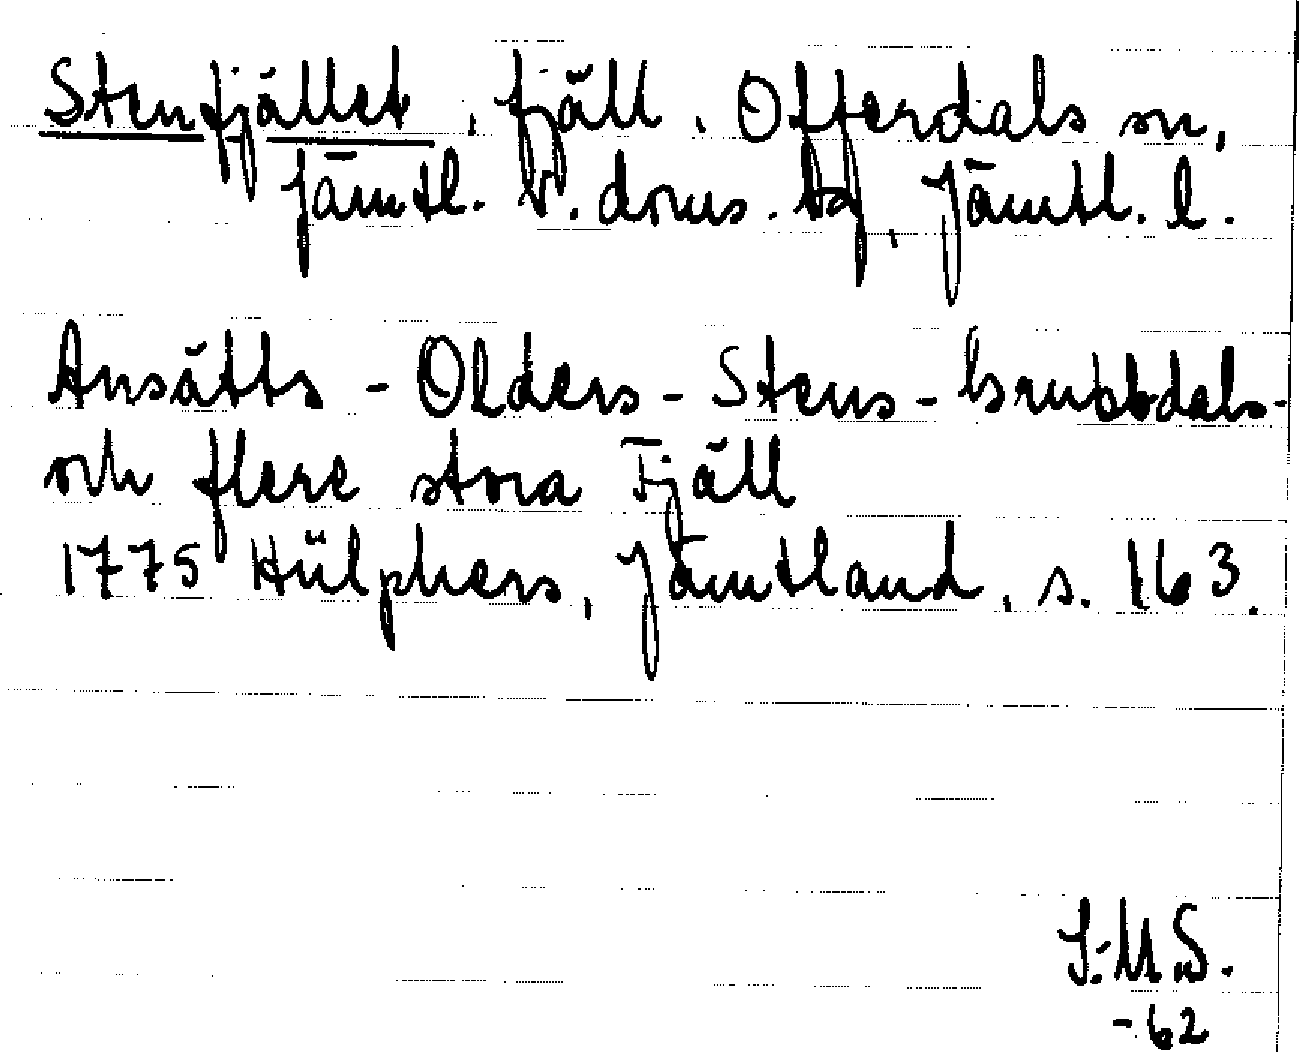 Stenfjället, fjäll, Offerdals sn,
Jämtl. v. doms. tg, Jämtl. l.
Ansätts - Olders - Stens - Grubbdals-
och flere stora Fjäll
1775 Hülphers, Jämtland, s. 163.
J.M.S.
-62